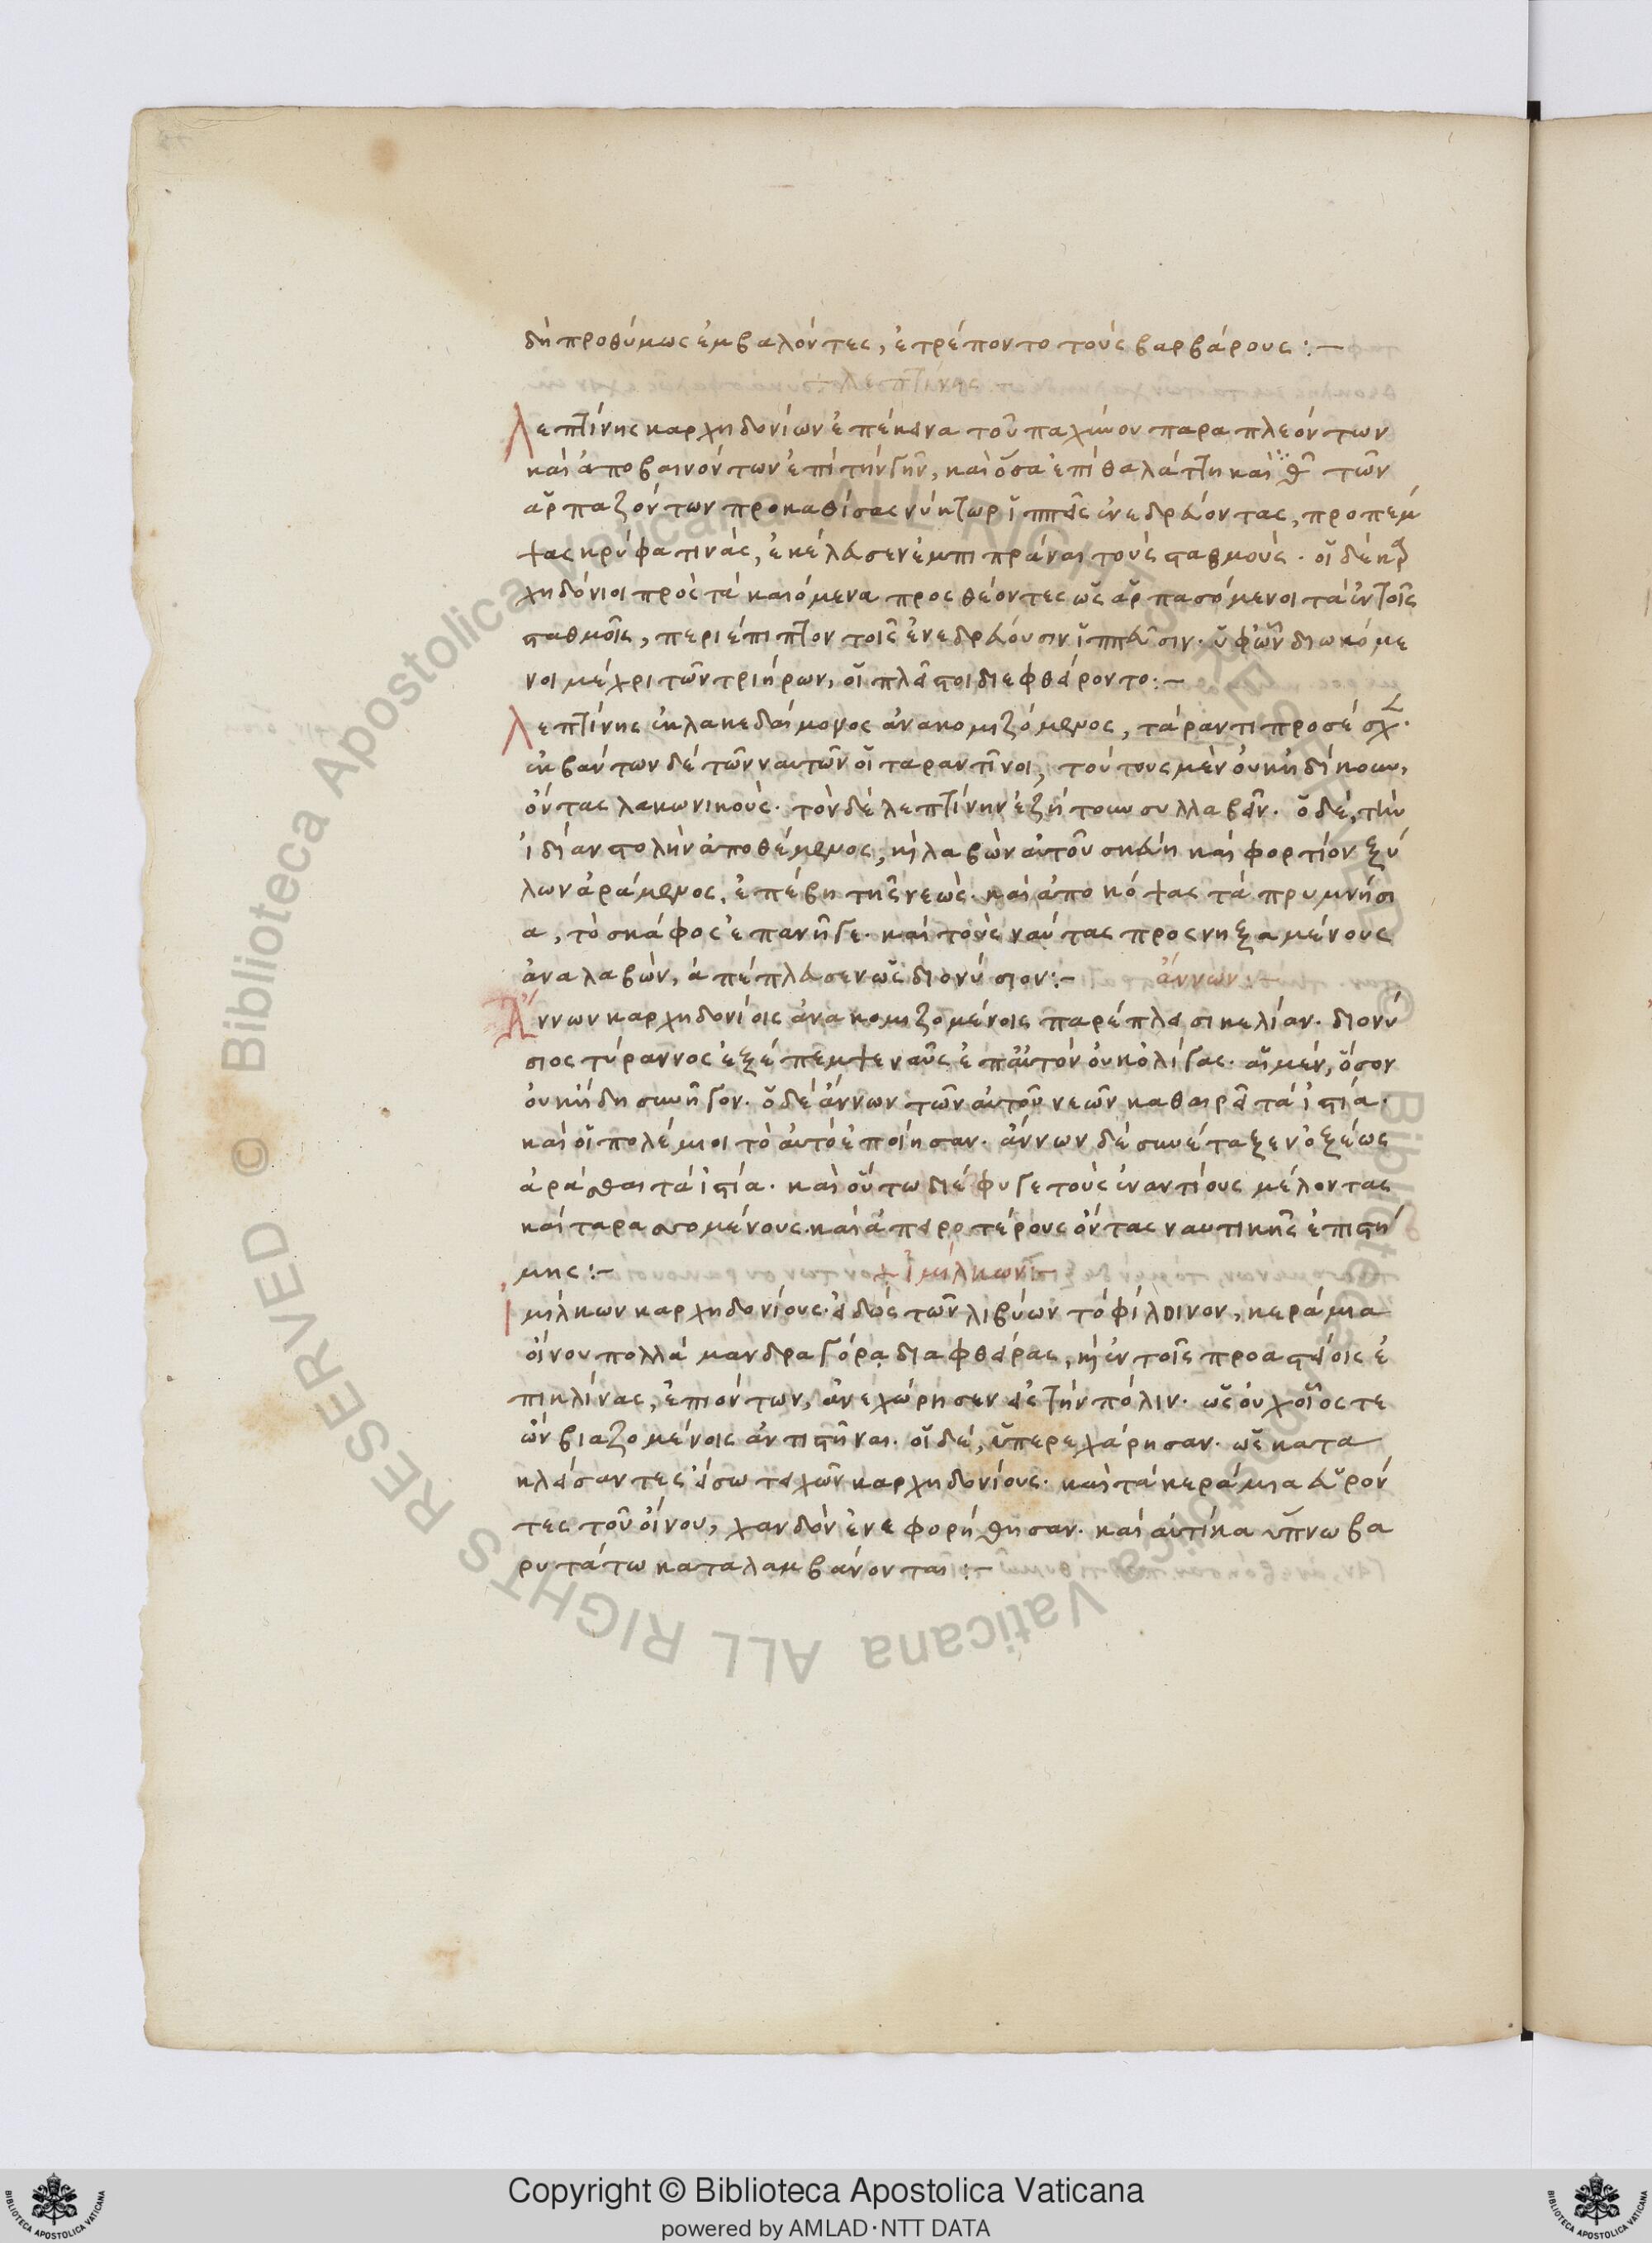 δὴ προθύμως ἐμβαλόντες, ἐτρέποντο τοὺς βαρβάρους :-
λεπτίνης
Λεπτίνης καρχηδονίων ἐπέκεινα τοῦ παχύνου παραπλεόντων
καὶ ἀποβαινόντων ἐπὶ τὴν γῆν, καὶ ὅσα ἐπὶ θαλάττη καὶ τῶν
ἁρπαζόντων προκαθίσας νύκτωρ ἱππεῖς ἐνεδρεύοντας, προπέμ
ψας κρύφα τινὰς, ἐκέλευσεν ἐμπιπράναι τοὺς σταθμούς. οἱ δὲ καρ
χηδόνιοι πρὸς τὰ καιόμενα προσθέοντες ὡς ἁρπασόμενοι τὰ ἐν τοῖς
σταθμοῖς, περιέπιπτον τοῖς ἐνεδρεύουσιν ἱππεῦσιν. ὑφ' ὧν διωκόμε
νοι μέχρι τῶν τριήρων, οἱ πλεῖστοι διεφθείροντο :-
Λεπτίνης ἐκ λακεδαίμονος ἀνακομιζόμενος, τάραντι προσέσχεν.
ἐκβάντων δὲ τῶν ναυτῶν οἱ ταραντῖνοι, τούτους μὲν οὐκ ἠδίκουν,
ὄντας λακωνικούς. τὸν δὲ λεπτίνην ἐζήτουν συλλαβεῖν. ὁ δὲ, τὴν
ἰδίαν στολὴν ἀποθέμενος, καὶ λαβὼν αὐτοῦ σκεύη καὶ φορτίον ξύ
λων ἀράμενος, ἐπέβη τῆς νεώς. καὶ ἀποκόψας τὰ πρυμνήσι
α, τὸ σκάφος ἐπανῆγε. καὶ τοὺς ναύτας προσνηξαμένους
ἀναλαβὼν, ἀπέπλευσεν ὡς διονύσιον :- ἄννων :-
Ἄννων καρχηδονίοις ἀνακομιζομένοις παρέπλει σικελίαν. διονύ
σιος τύραννος ἐξέπεμψε ναῦς ἐπ' αὐτὸν οὐκ ὀλίγας. αἱ μὲν, ὅσον
οὐκ ἤδη συνῆγον. ὁ δὲ ἄννων τῶν αὐτοῦ νεῶν καθαιρεῖ τὰ ἱστία.
καὶ οἱ πολέμιοι τὸ αὐτὸ ἐποίησαν. ἄννων δὲ συνέταξεν ὀξέως
ἀράσθαι τὰ ἱστία. καὶ οὕτω διέφυγε τοὺς ἐναντίους μέλοντας
καὶ ταρασσομένους. καὶ ἀπειροτέρους ὄντας ναυτικῆς ἐπιστή
μης :- ἰμίλκων :-
Ἰμίλκων καρχηδονίους. εἰδὼς τῶν λιβύων τὸ φίλοινον, κεράμια
οἴνου πολλὰ μανδραγόρα διαφθείρας, καὶ ἐν τοῖς προαστείοις ἐ
πικλίνας, ἐπιόντων, ἀνεχώρησεν εἰς τὴν πόλιν. ὡς οὐχ οἷός τε
ὢν βιαζομένοις ἀντιστῆναι. οἱ δὲ, ὑπερεχάρησαν. ὡς κατα
κλείσαντες εἴσω τειχῶν καρχηδονίους. καὶ τὰ κεράμια εὑρόν
τες τοῦ οἴνου, χανδὸν ἐνεφορήθησαν. καὶ αὐτίκα ὕπνω βα
ρυτάτω καταλαμβάνονται :-
Copyright © Biblioteca Apostolica Vaticana
powered by AMLAD·NTT DATA
Biblioteca Apostolica Vaticana ALL RIGHTS RESERVED ©
Biblioteca Apostolica Vaticana ALL RIGHTS RESERVED ©
BIBLIOTECA APOSTOLICA VATICANA
BIBLIOTECA APOSTOLICA VATICANA